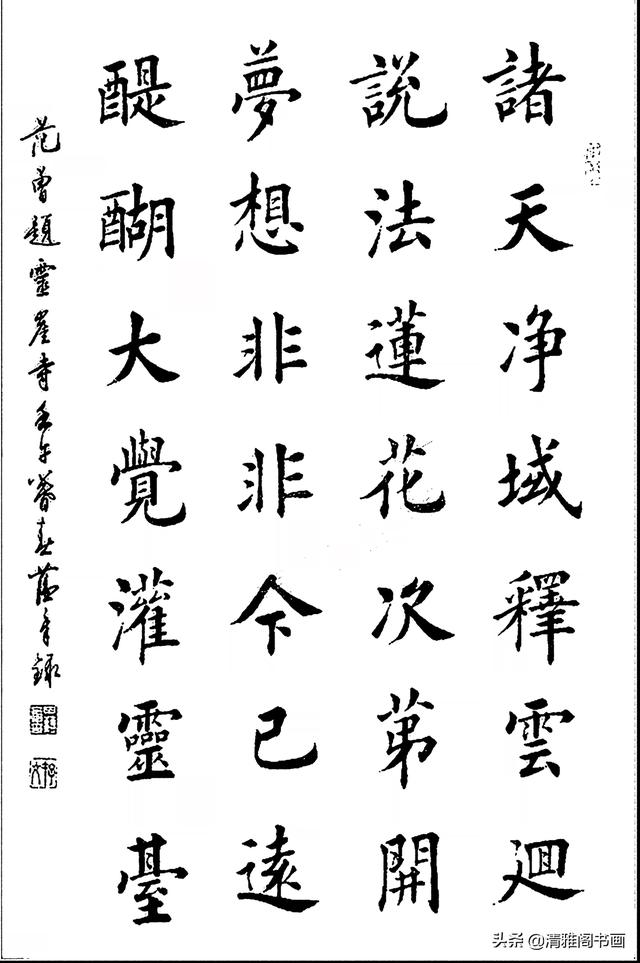 諸天净域釋雲廻
説法蓮花次苐開
夢想非非今已遠
醍醐大覺灌靈臺
范曾題靈崖寺壬午春錄
头条 @清雅阁书画